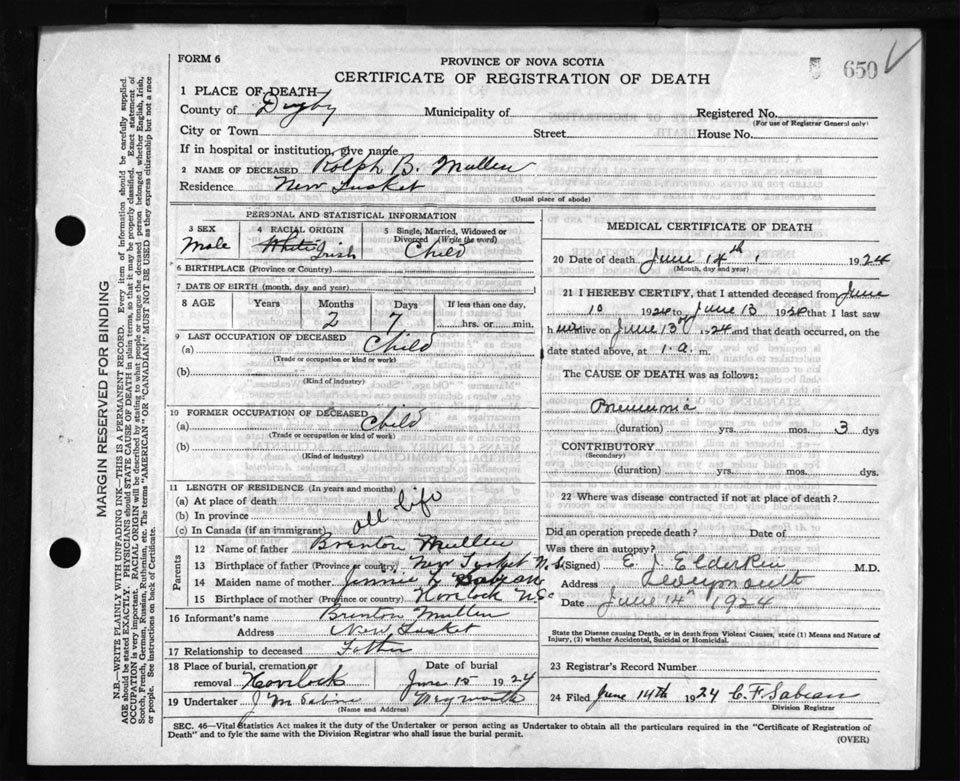 650
FORM 6
PROVINCE OF NOVA SCOTIA
CERTIFICATE OF REGISTRATION OF DEATH
1 PLACE OF DEATH—
County of Digby Municipality of Registered No.
(For use of Registrar General only)
City or Town Street House No.
If in hospital or institution, give name
2 NAME OF DECEASED Rolph B. Mullen
Residence New Tusket
(Usual place of abode)
PERSONAL AND STATISTICAL INFORMATION
3 SEX 4 RACIAL ORIGIN 5 Single, Married, Widowed or Divorced (Write the word)
Male White Irish Child
6 BIRTHPLACE (Province or Country)
7 DATE OF BIRTH (month, day, and year)
8 AGE Years Months Days If less than one day,
2 7 hrs. or min.
9 LAST OCCUPATION OF DECEASED
(a) Child
(Trade or occupation or kind of work)
(b)
(Kind of industry)
10 FORMER OCCUPATION OF DECEASED
(a) Child
(Trade or occupation or kind of work)
(b)
(Kind of industry)
11 LENGTH OF RESIDENCE (In years and months)
(a) At place of death
(b) In province all life
(c) In Canada (if an immigrant)
Parents
12 Name of father Brenton Mullen
13 Birthplace of father (Province or country) New Tusket N.S.
14 Maiden name of mother Jennie
15 Birthplace of mother (Province or country) Havelock N.S.
16 Informant's name Brenton Mullen
Address New Tusket
17 Relationship to deceased Father
18 Place of burial, cremation or Date of burial
removal Havelock June 15 1924
19 Undertaker J M Weymouth
(Name and Address)
MEDICAL CERTIFICATE OF DEATH
20 Date of death June 14th, 1924
(Month, day and year)
21 I HEREBY CERTIFY, that I attended deceased from June
10 1924 to June 13 1924 that I last saw
him alive on June 13 1924 and that death occurred, on the
date stated above, at 1.a. m.
The CAUSE OF DEATH was as follows:
Pneumonia
(duration) yrs. mos. 3 dys
CONTRIBUTORY
(Secondary)
(duration) yrs. mos. dys.
22 Where was disease contracted if not at place of death?
Did an operation precede death? Date of
Was there an autopsy?
(Signed) E Elderkin M.D.
Address Weymouth
Date June 14th 1924
State the Disease causing Death, or in death from Violent Causes, state (1) Means and Nature of
Injury, (2) whether Accidental, Suicidal or Homicidal.
23 Registrar's Record Number
24 Filed June 14th 1924 C. F. Sabean
Division Registrar
SEC. 46—Vital Statistics Act makes it the duty of the Undertaker or person acting as Undertaker to obtain all the particulars required in the "Certificate of Registration of
Death" and to fyle the same with the Division Registrar who shall issue the burial permit.
(OVER)
MARGIN RESERVED FOR BINDING
N.B.—WRITE PLAINLY WITH UNFADING INK—THIS IS A PERMANENT RECORD. Every item of information should be carefully supplied.
AGE should be stated EXACTLY. PHYSICIANS should STATE CAUSE OF DEATH in plain terms, so that it may be properly classified. Exact statement of
OCCUPATION is very important. RACIAL ORIGIN will be described by stating to what people or tongue the deceased person belonged, whether English, Irish,
Scotch, French, German, Russian, Ruthenian, etc. The terms "AMERICAN" OR "CANADIAN" MUST NOT BE USED as they express citizenship but not a race
or people. See instructions on back of Certificate.